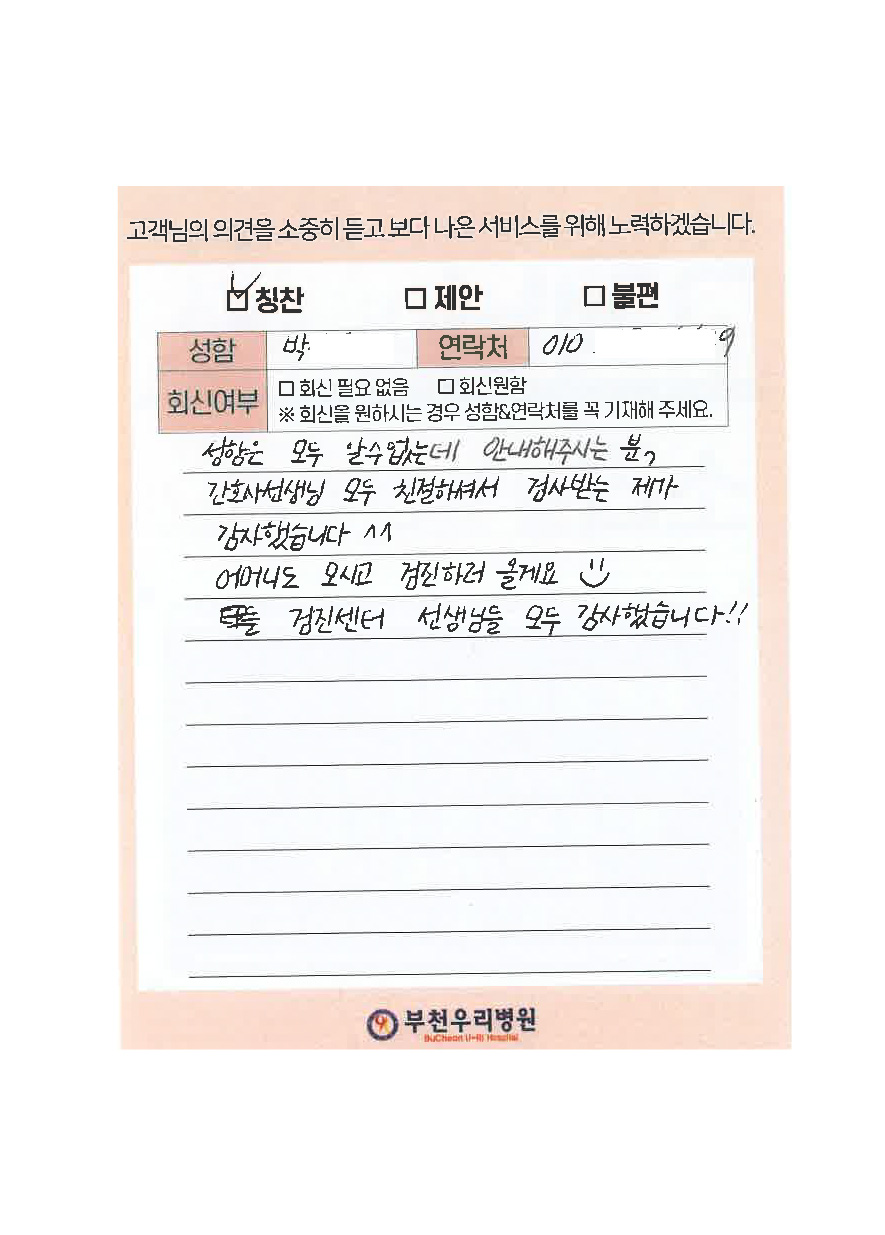 고객님의 의견을 소중히 듣고 보다 나은 서비스를 위해 노력하겠습니다.
☑ 칭찬 □ 제안 □ 불편
성함 박 연락처 010 9
회신여부 □ 회신 필요 없음 □ 회신원함
※ 회신을 원하시는 경우 성함&연락처를 꼭 기재해 주세요.
성함은 모두 알수없는데 안내해주시는 분,
간호사선생님 모두 친절하셔서 검사받는 제가
감사했습니다 ^^
어머니도 모시고 검진하러 올게요
검진센터 선생님들 모두 감사했습니다!!
부천우리병원
BuCheon U-Ri Hospital